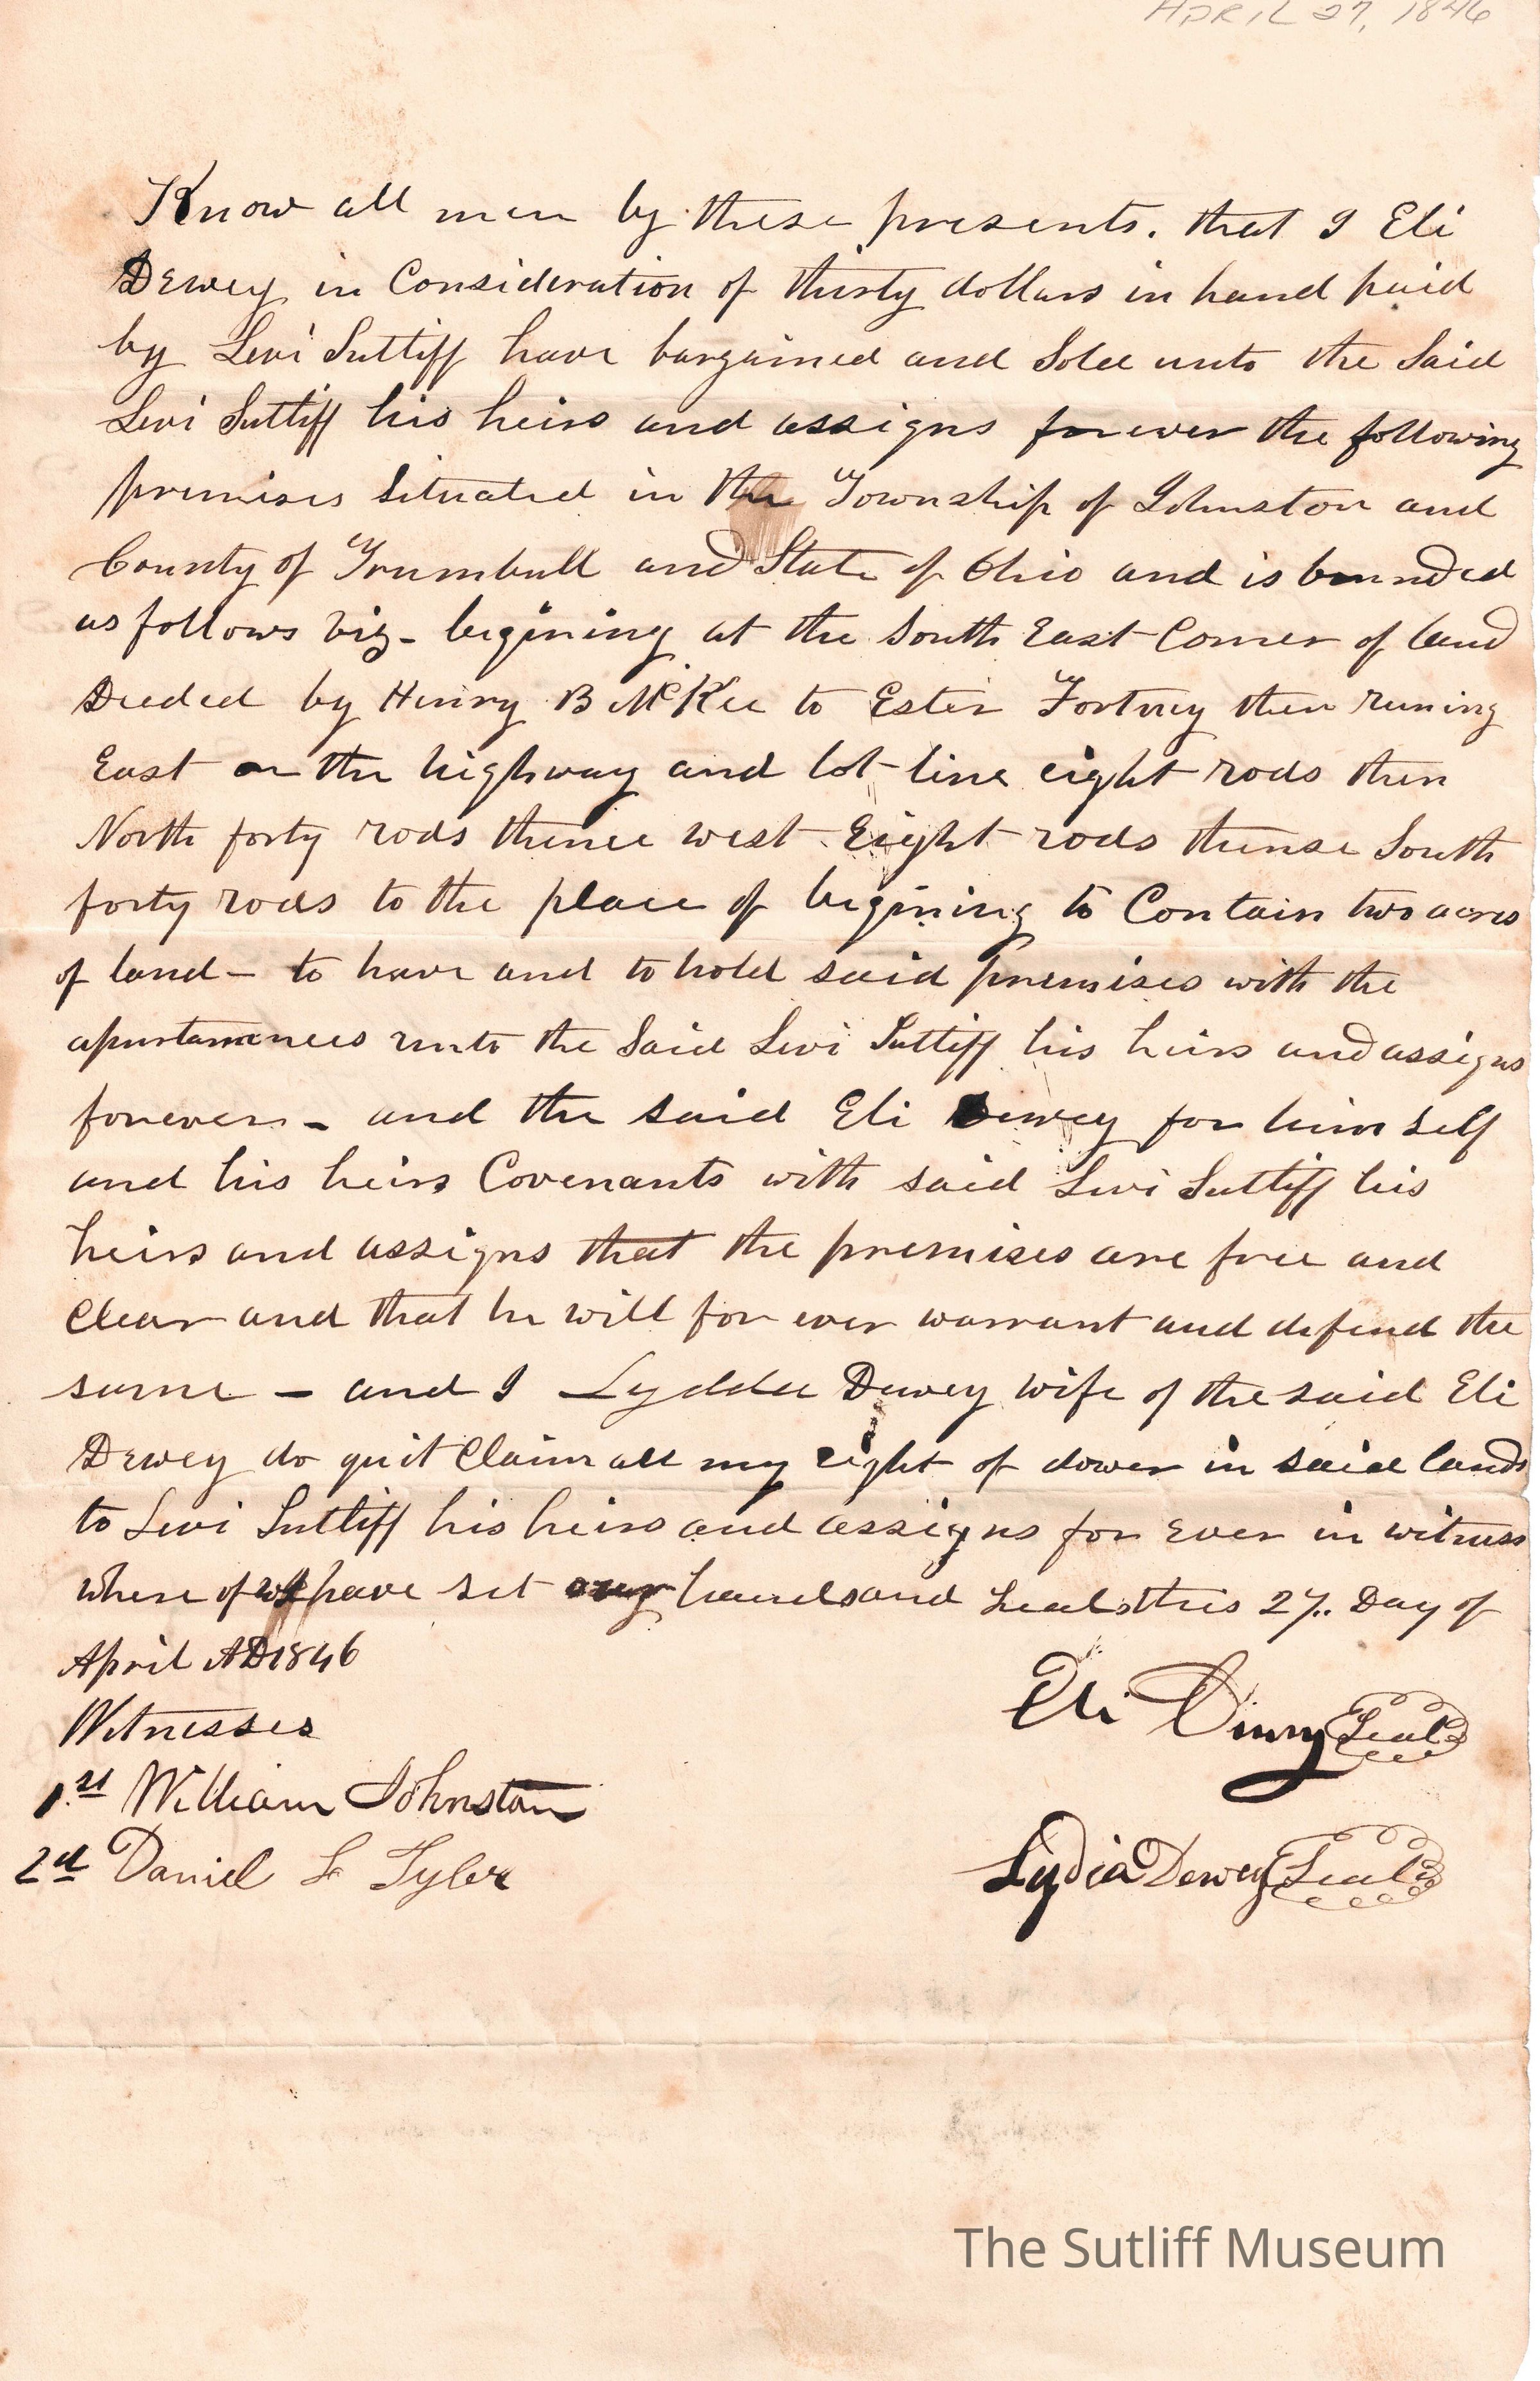 APRIL 27, 1846
Know all men by these presents. that I Eli
Dewey in Consideration of thirty dollars in hand paid
by Levi Sutliff have bargained and Sold unto the Said
Levi Sutliff his heirs and assigns forever the following
premises Situated in the Township of Johnston and
County of Trumbull and State of Ohio and is bounded
as follows viz- begining at the South East Corner of land
Deeded by Henry B McKee to Ester Fortney then runing
East on the highway and lot-line eight rods then
North forty rods thence west Eight rods thense South
forty rods to the place of begining to Contain two acres
of land - to have and to hold said premises with the
apurtamences unto the Said Levi Sutliff his heirs and assigns
forever - and the said Eli Dewey for him self
and his heirs Covenants with said Levi Sutliff his
heirs and assigns that the premises are free and
Clear and that he will for ever warrant and defend the
same - and I Lydda Dewey wife of the said Eli
Dewey do quit Claim all my right of dower in said lands
to Levi Sutliff his heirs and assigns for ever in witness
where of we have set our hands and seals this 27.. Day of
April AD 1846
Witnesses
1.st William Johnston
2d Daniel L Tyler
Eli Dewey Seal
Lydia Dewey Seal
The Sutliff Museum